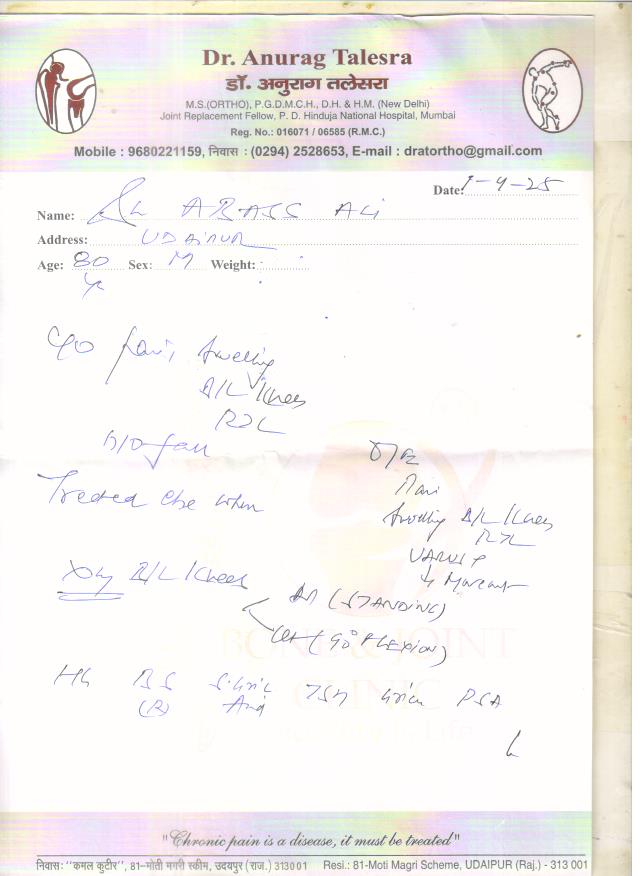 Dr. Anurag Talesra
डॉ. अनुराग तलेसरा
M.S.(ORTHO), P.G.D.M.C.H., D.H. & H.M. (New Delhi)
Joint Replacement Fellow, P. D. Hinduja National Hospital, Mumbai
Reg. No.: 016071 / 06585 (R.M.C.)
Mobile : 9680221159, निवास : (0294) 2528653, E-mail : dratortho@gmail.com
Date: 1-4-25
Name: Sh ABASS ALi
Address: UDAIPUR
Age: 80 Sex: M Weight:
Yr
C/O Pain, Swelling
B/L Knees
R>L
H/O fall
Treated else when
O/E
Pain
Swelling B/L Knees
R>L
VARUS +
↓ Movement
Xray B/L Knees
AP (STANDING)
Lat (90° FLEXION)
Hb BS S. Uric TSH Urien PSA
(R) Acid
BONE & JOINT
CLINIC
"Chronic pain is a disease, it must be treated"
निवास: "कमल कुटीर", 81-मोती मगरी स्कीम, उदयपुर (राज.) 313001 Resi.: 81-Moti Magri Scheme, UDAIPUR (Raj.) - 313 001